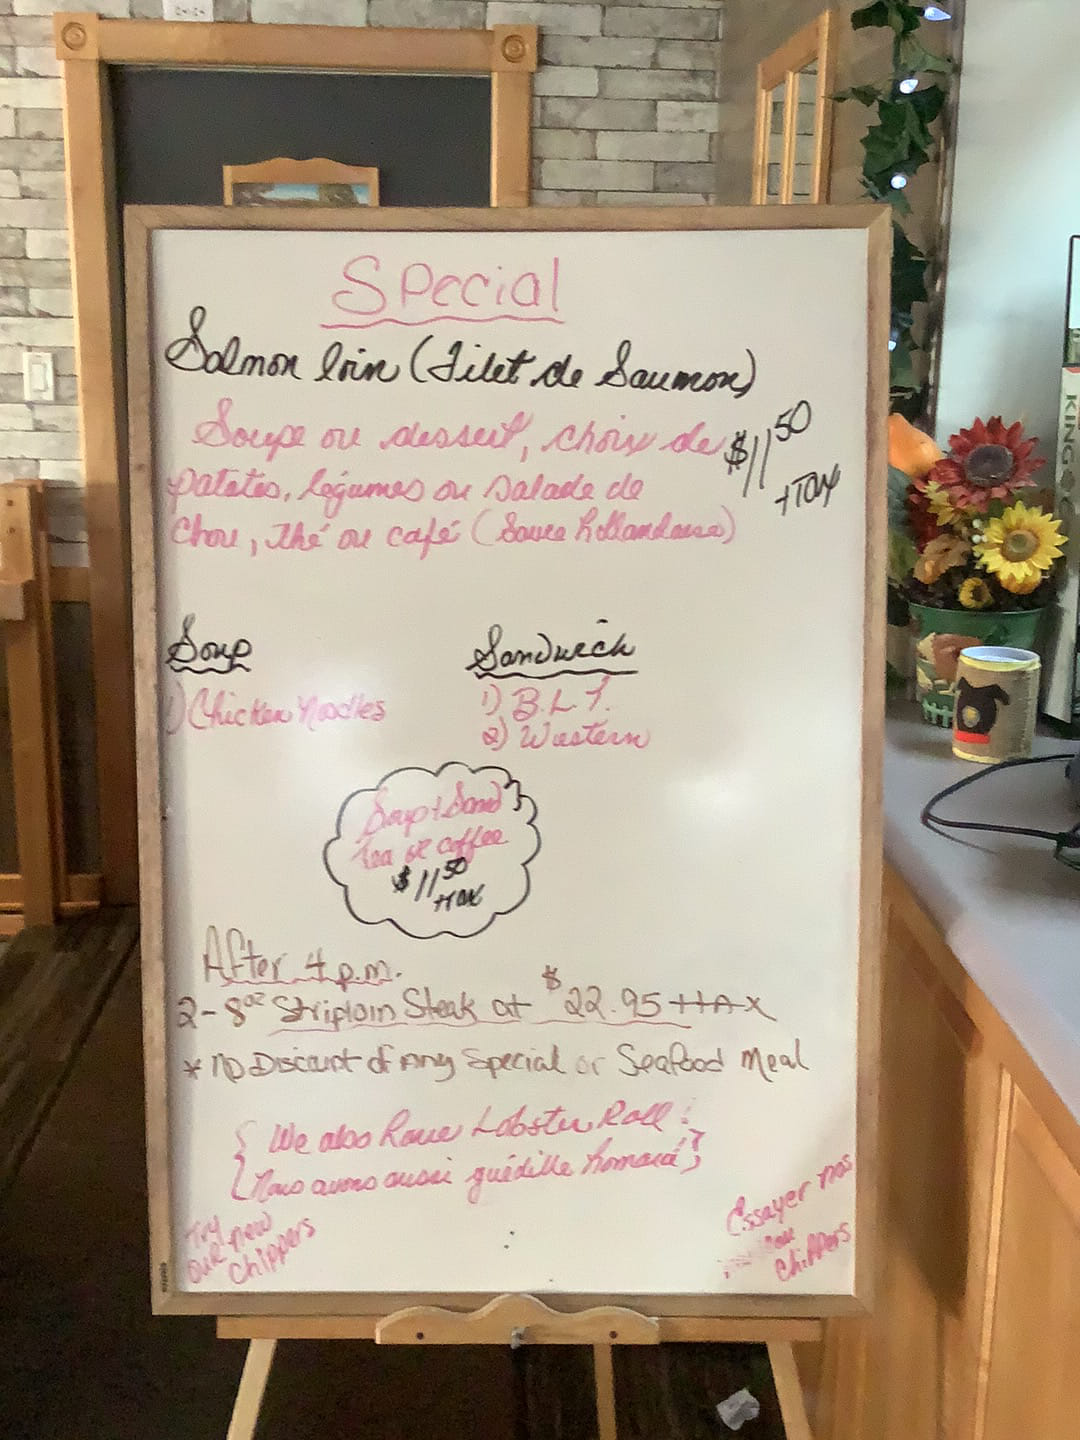 Special
Salmon loin (Filet de Saumon)
Soupe ou dessert, choix de
patates, légumes ou salade de
Chou, thé ou café (Sauce hollandaise)
$11.50
+TAX
Soup
1) Chicken Noodles
Sandwich
1) B.L.T.
2) Western
Soup + Sand
Tea or coffee
$11.50
+TAX
After 4 p.m.
2-8oz Striploin Steak at $22.95 +TAX
* No Discount of Any Special or Seafood Meal
{ We also have Lobster Roll }
{ Nous avons aussi guédille homard }
Try
our new
chippers
Essayer nos
chippers
KING